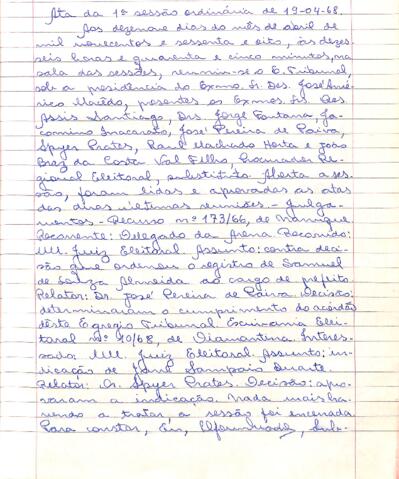 Ata da 1ª sessão ordinária de 19-04-68.
Aos dezenove dias do mês de abril de
mil novecentos e sessenta e oito, às dezes-
seis horas e quarenta e cinco minutos, na
sala das sessões, reuniu-se o E. Tribunal,
sob a presidência do Exmo. Sr. Des. José Amé-
rico Macêdo, presentes os Exmos. Srs. Des.
Assis Santiago, Drs. Jorge Fontana, Ja-
comino Inacarato, José Pereira de Paiva,
Spyer Prates, Raul Machado Horta e João
Braz da Costa Val Filho, Procurador Re-
gional Eleitoral, substituto. Aberta a ses-
são, foram lidas e aprovadas as atas
das duas últimas reuniões. - Julga-
mentos - Recurso nº 173/66, de
Recorrente: Delegado da Arena. Recorrido:
MM. Juiz Eleitoral. Assunto: contra deci-
são que ordenou o registro de Samuel
de Souza Almeida ao cargo de prefeito.
Relator: Dr. José Pereira de Paiva. Decisão:
determinaram o cumprimento do acórdão
dêste Egregio Tribunal. Escrivania Elei-
toral nº 10/68, de Diamantina. Interes-
sado: MM. Juiz Eleitoral. Assunto: in-
dicação de Sampaio Duarte.
Relator: Dr. Spyer Prates. Decisão: apro-
varam a indicação. Nada mais ha-
vendo a tratar, a sessão foi encerrada.
Para constar, Eu, Sub-